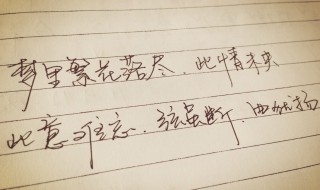 梦里繁花落尽，此情未央
此意难忘，弦虽断，曲犹扬